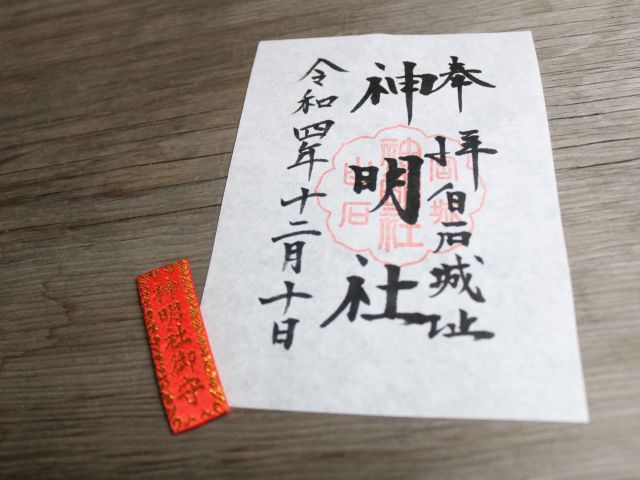 奉拝
白石城址
神明社
令和四年十二月十日
神明社御守